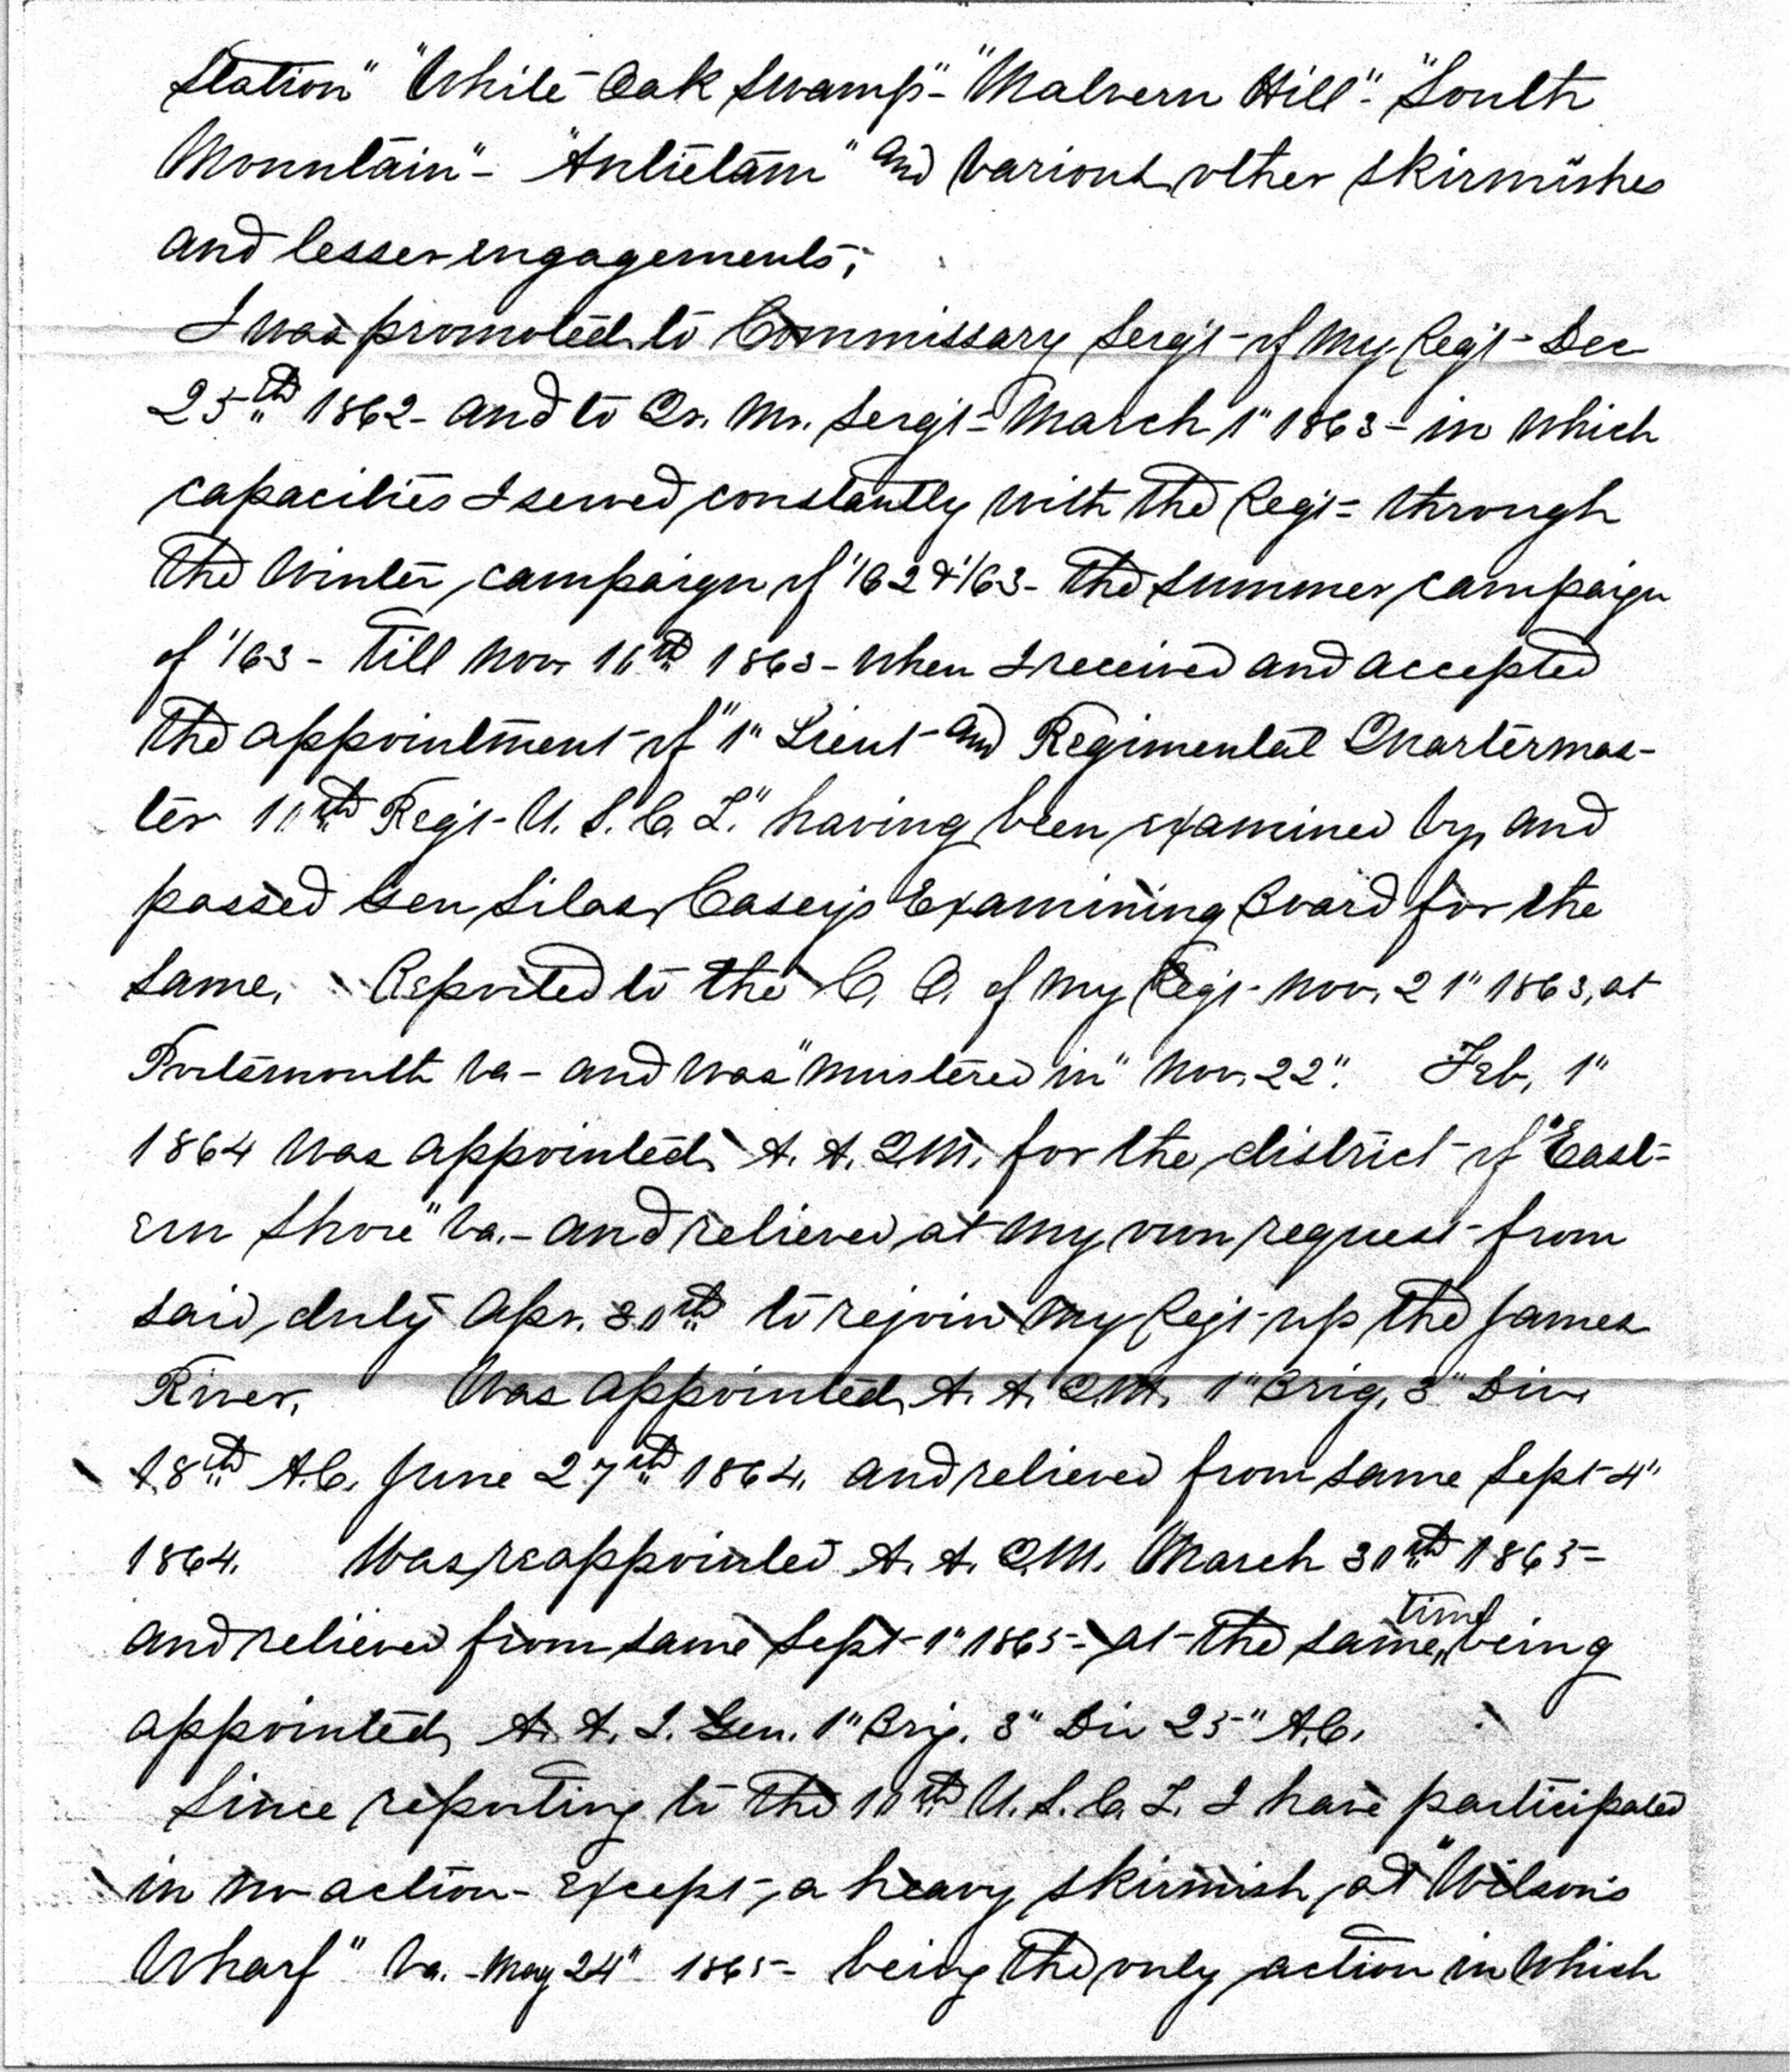 Station" "White Oak Swamp"- "Malvern Hill"- "South
Mountain"- "Antietam" and various other skirmishes
and lesser engagements;
I was promoted to Commissary Serg't- of my Reg't- Dec
25th 1862- and to Qr. Mr. Serg't- March 1" 1863- in which
capacities I served constantly with the Reg't- through
the Winter campaign of '62 & '63- the summer campaign
of '63- till Nov. 16th 1863- when I received and accepted
the appointment- of "1" Lieut- and Regimental Quartermas-
ter 10th Reg't- U. S. C. I." having been examined by, and
passed Gen Silas Casey's Examining Board for the
same. Reported to the C. O. of my Reg't- Nov. 21" 1863, at
Portsmouth Va- and was "mustered in" Nov. 22". Feb. 1"
1864 was appointed A. A. Q.M. for the district- of "East-
ern Shore" Va.- and relieved at my own request- from
said duty Apr. 30th to rejoin my Reg't- up the James
River. Was appointed A. A. Q.M. 1" Brig. 3" Div.
18th A.C. June 27th 1864. and relieved from same Sept- 4"
1864. Was reappointed A. A. Q.M. March 30th 1865-
and relieved from same Sept- 1" 1865- at- the same time being
appointed A. A. I. Gen. 1" Brig. 3" Div 25" A.C.
Since reporting to the 10th U. S. C. I. I have participated
in no action- except- a heavy skirmish at "Wilson's
Wharf" Va. - May 24" 1865- being the only action in which